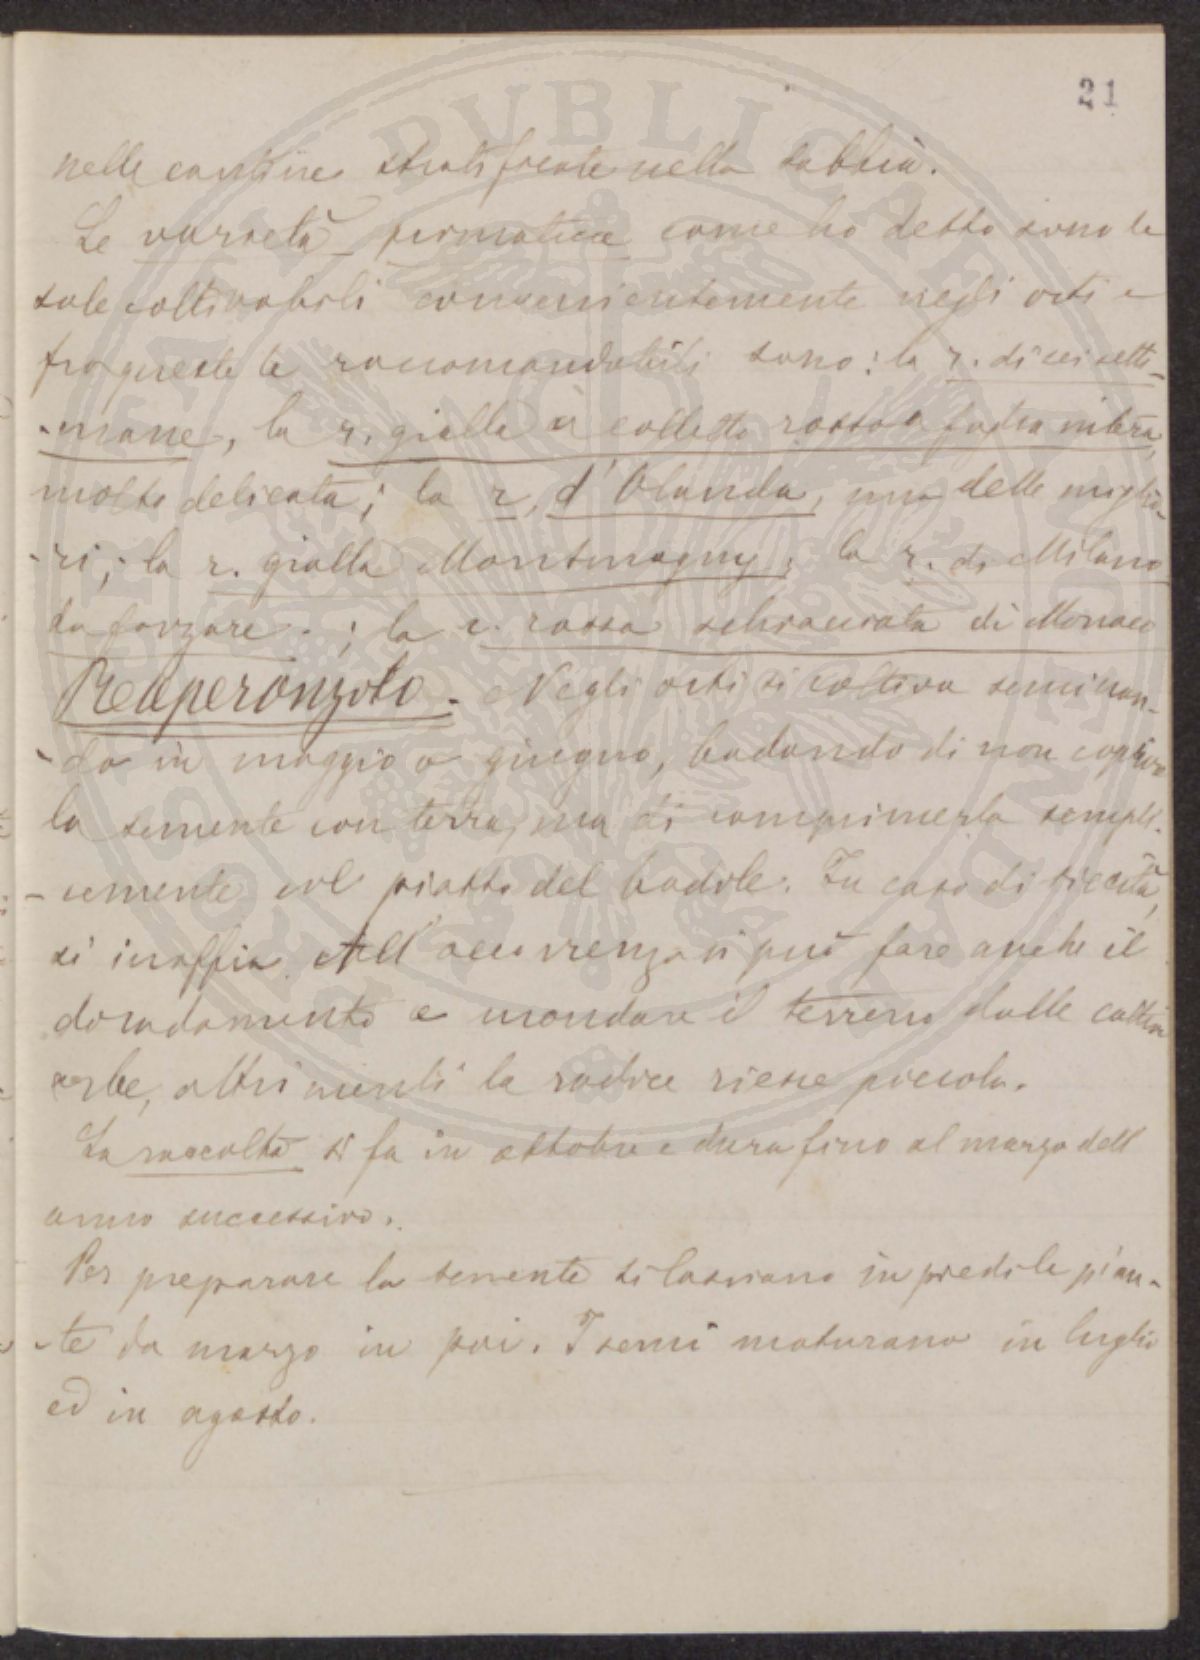 21
nelle cantine stratificate nella sabbia.
Le varietà primaticcie come ho detto sono le
sole coltivabili convenientemente negli orti e
fra queste le raccomandabili sono: la r. di sei setti-
-mane, la r. gialla a colletto rosso a foglia intera,
molto delicata; la r. d'Olanda, una delle miglio-
-ri; la r. gialla Montmagny; la r. di Milano
da forzare.; la r. rossa schiacciata di Monaco
Raperonzolo. Negli orti si coltiva seminan-
-do in maggio o giugno, badando di non coprire
la semente con terra, ma di comprimerla sempli-
-cemente col piatto del badile. In caso di siccità,
si inaffia. All'occorrenza si può fare anche il
diradamento e mondare il terreno dalle cattive
erbe, altrimenti la radice riesce piccola.
La raccolta si fa in ottobre e dura fino al marzo dell
anno successivo.
Per preparare la semente si lasciano in piedi le pian-
-te da marzo in poi. I semi maturano in luglio
ed in agosto.